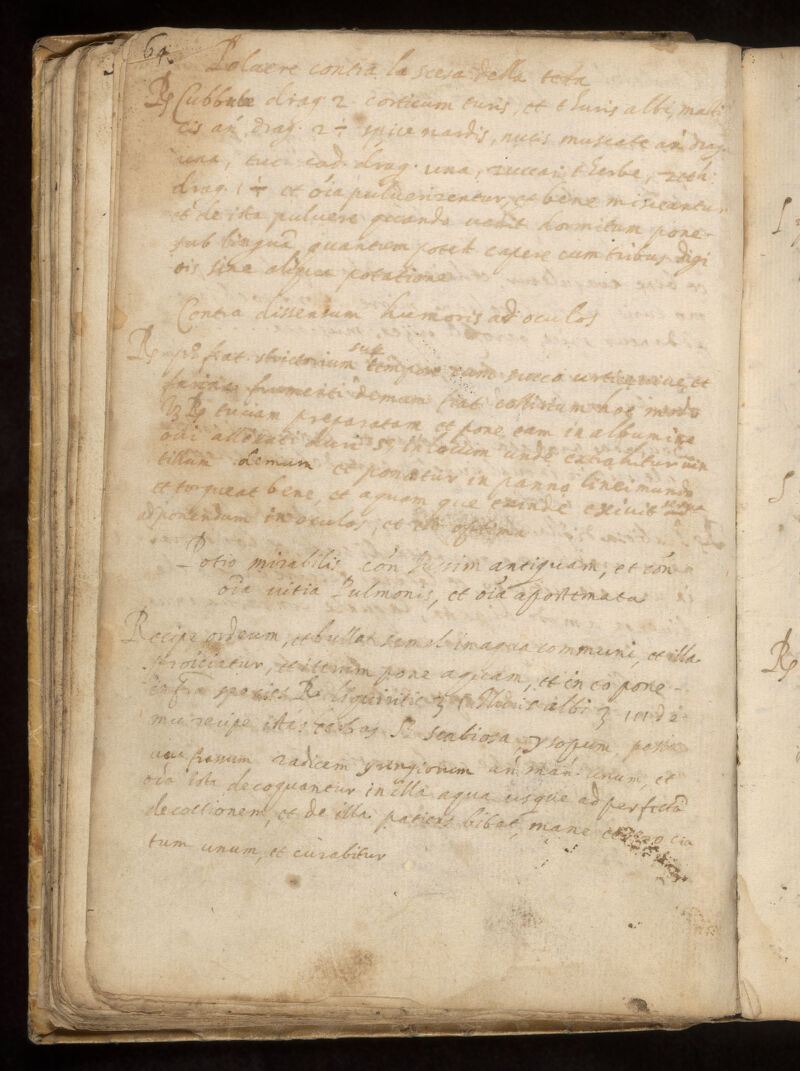 64
Polvere contra la scesa della testa
Rx Cubbube drag 2 corticum turis, et thuris albi, masti
cis an drag. 2 ÷ spice nardis, nucis muscate an drag
una, drag. una, zuccari
drag. 1 ÷ et oia pulverizentur, et bene misceantur
et de ista pulvere quando vadit dormitum pone
sub lingua quantum potest capere cum tribus digi
tis sine aliqua potatione
Contra dissensum humoris ad oculos
Rx po fiat strictorium sup tempore cum succo urtice et
farina frumenti demum fiat collirium hoc modo
Rx tuciam preparatam et pone eam in albumine
ovi allessati duri in locum unde extrahitur vi
tillum demum et ponatur in panno lineo mundo
et torqueat bene, et aquam que exinde exivit
ad ponendum in oculos, et est optima
Potio mirabilis con tussim antiquam, et con
oia vitia Pulmonis, et oia apostemata
Recipe ordeum, et bulliat semel in aqua communi, et illa
proiciatur, et iterum pone aquam, et in eo pone
infra species Rx liquiritie albi III de
mu recipe istas erbas scabiosa, ysopum
radicem yringiorum an man. unum, et
oia ista decoquantur in illa aqua usque ad perfectã
decoctionem, et de illa patiens bibat, mane et sero cia
tum unum, et curabitur